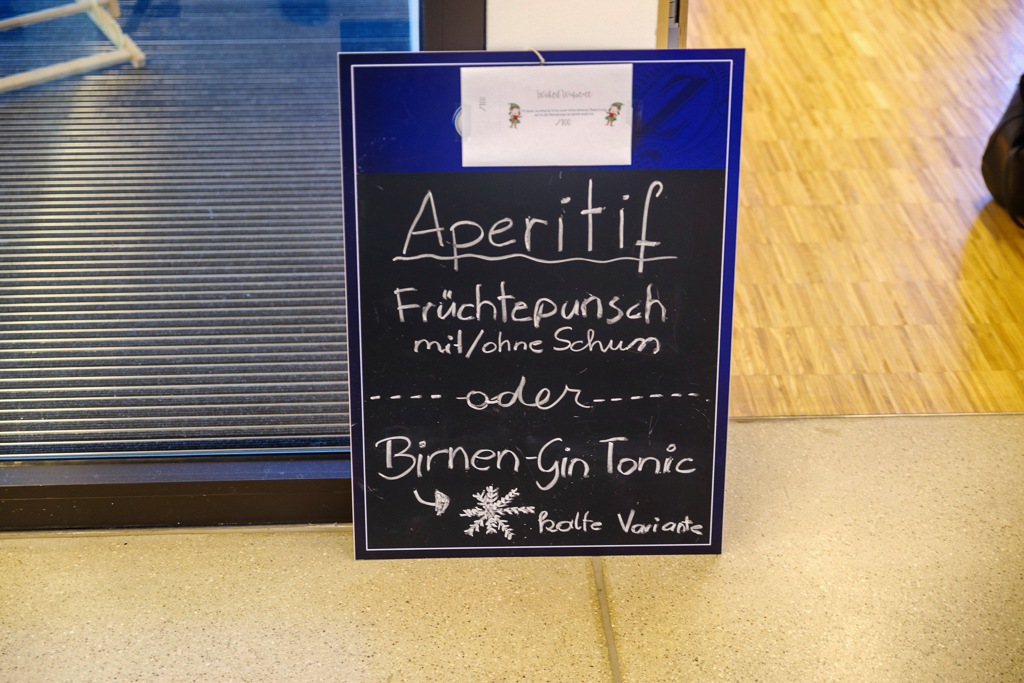 Aperitif
Früchtepunsch
mit/ohne Schuss
oder
Birnen-Gin Tonic
kalte Variante